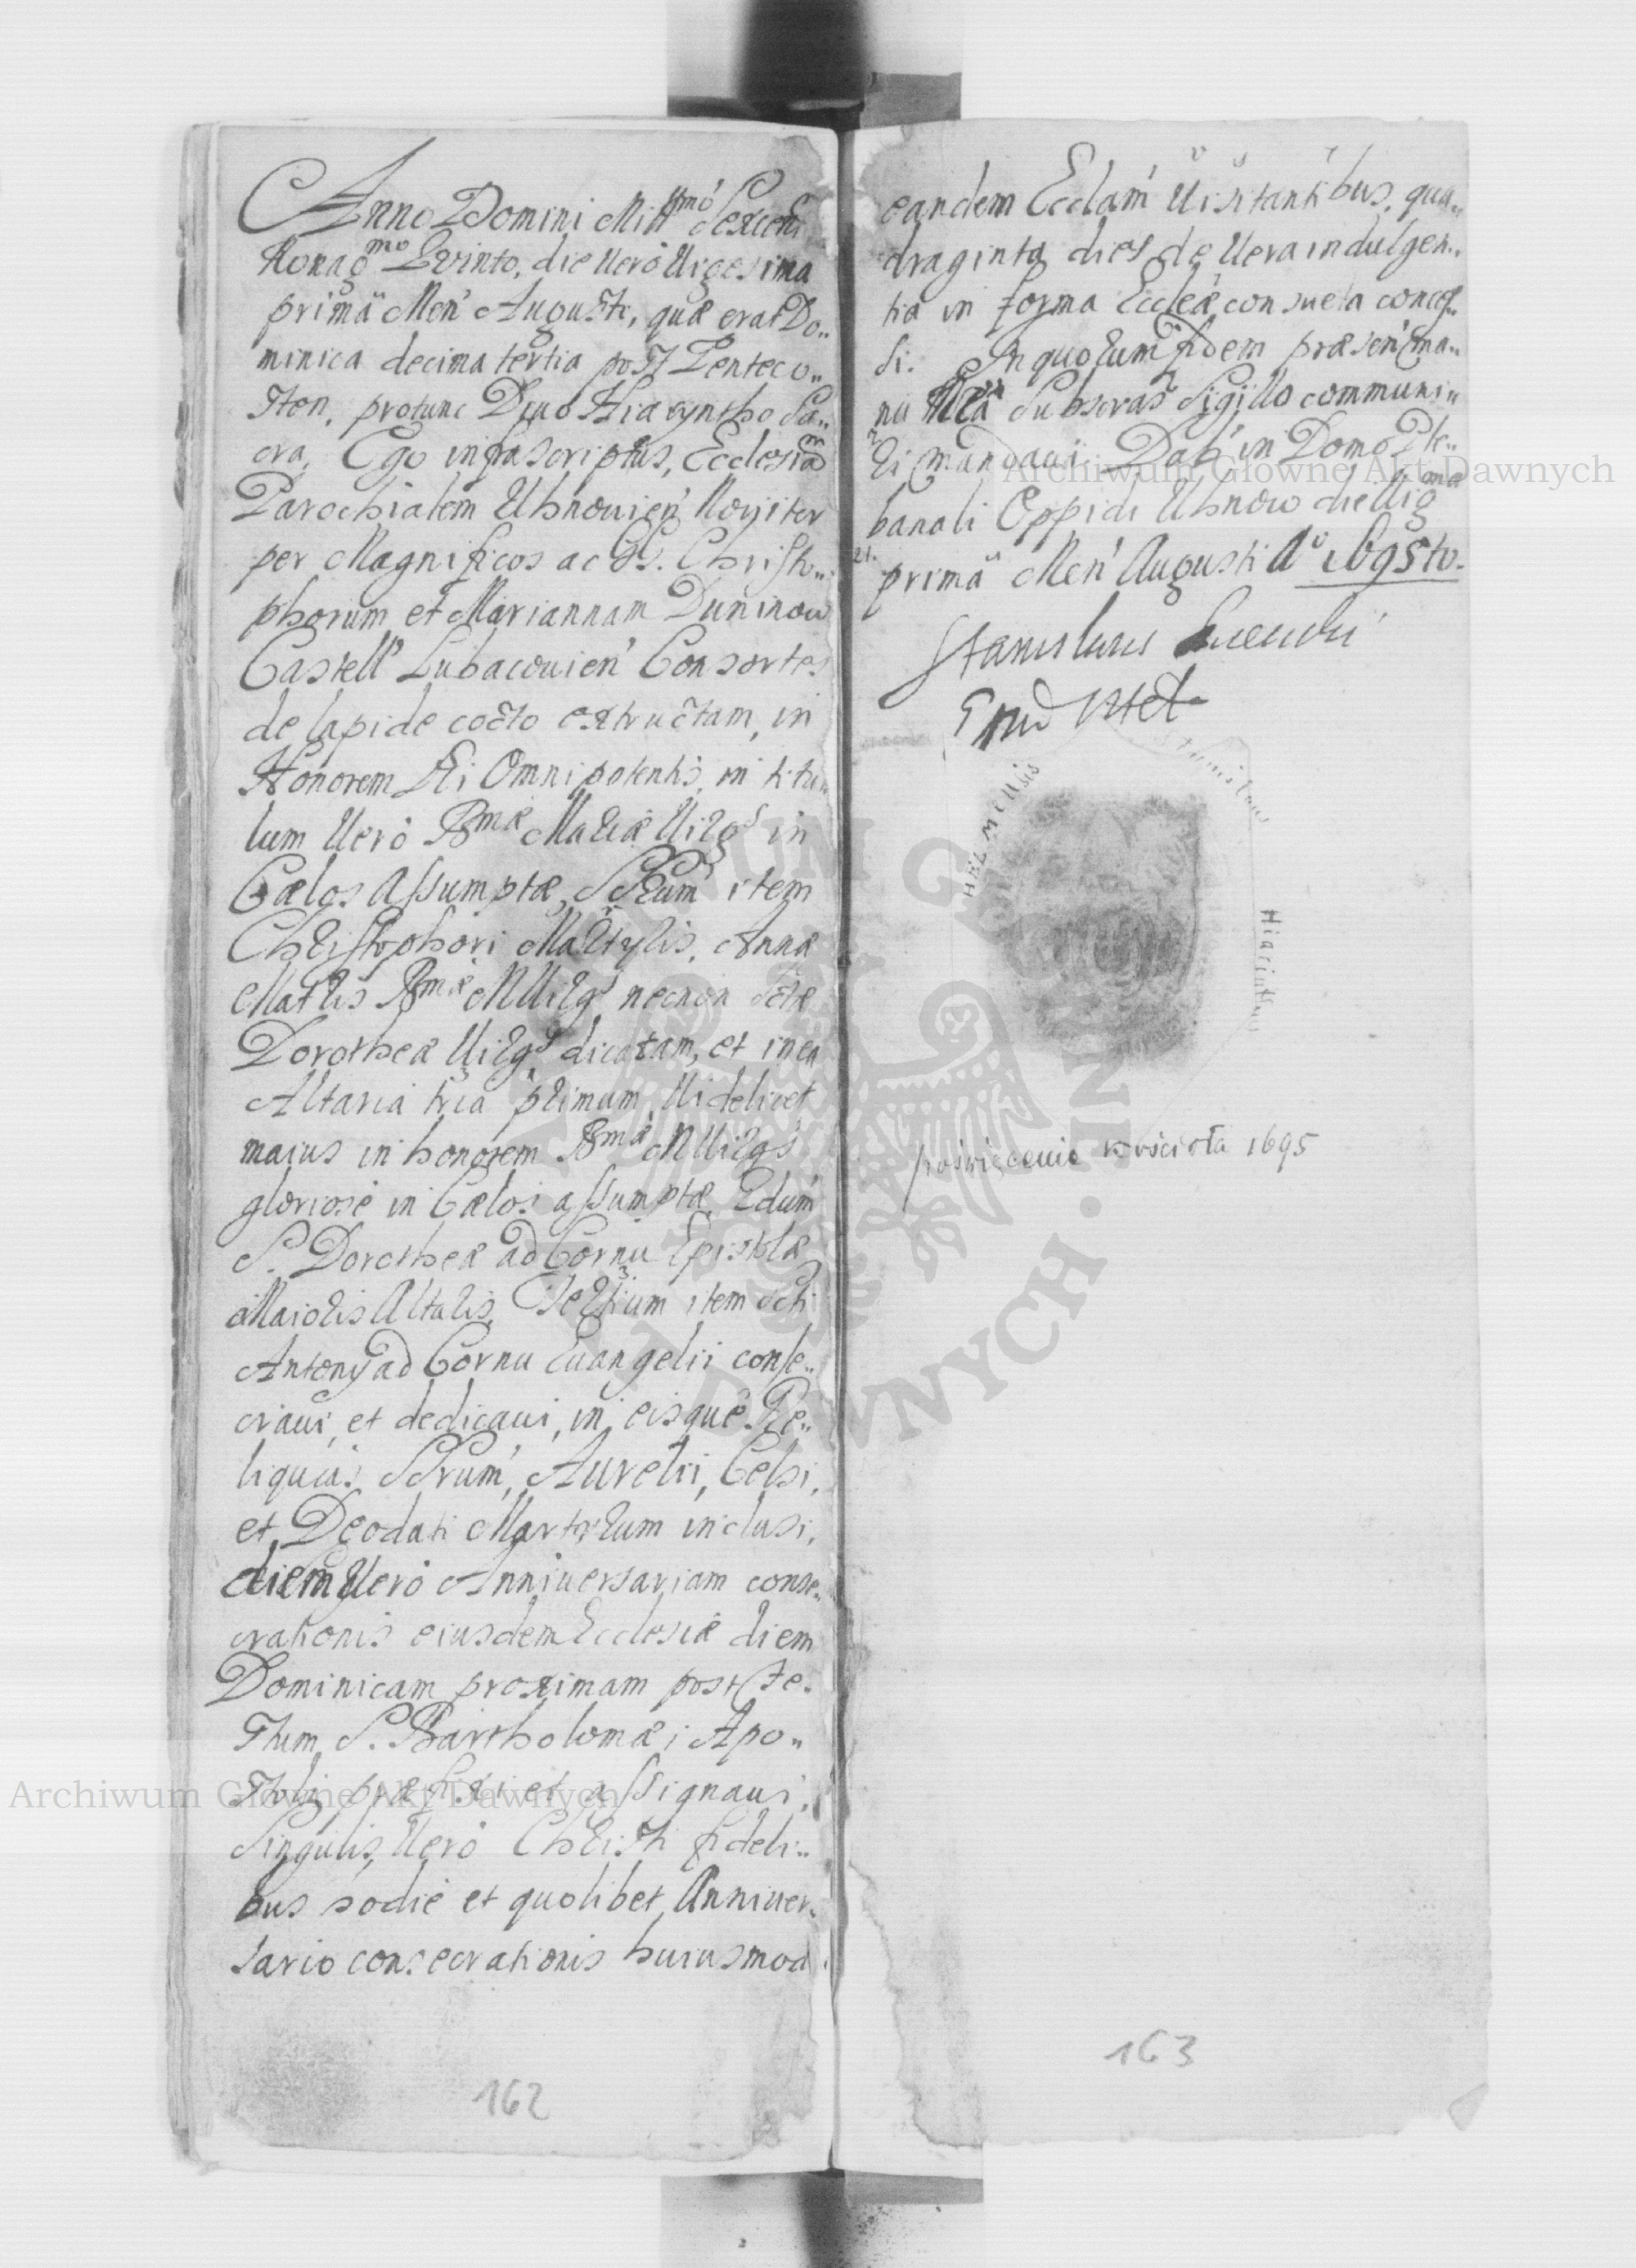 Anno Domini Mill̃mo Sexcen
Nonag̃mo Qvinto, die Uerò Uigesima
primã Men̕ Augusti, quæ erat Do..
minica decima tertia post Penteco..
sten, protunc Diuo Hiacyntho Sa..
cra, Ego infrascriptus, Ecclesiam
Parochialem Uhnouien̕ Nouiter
per Magnificos ac GG. Christo..
phorum et Mariannam Duninow
Castell̕ Lubacouien̕ Consortes
de lapide cocto extructam, in
Honorem Dei Omnipotentis, in titu..
lum Uerò Bmæ Mariæ Uirgs in
Cælos Assumptæ, SSrum item
Christophori Martyris, Annæ
Matris Bmæ MUirgs necnon Sctæ
Dorotheæ Uirgs dicatam, et in ea
Altaria tria primum Uidelicet
maius in honorem Bmæ MUirgs
gloriosè in Cælos assumptæ, 2dum
S. Dorotheæ ad Cornu Epistolæ
Maioris Altaris, Tertium item Scti
Antonij ad Cornu Euangelii conse..
craui, et dedicaui, in eisquè Re..
liquias SSrum̕, Aurelii, Celsi,
et Deodati Martyrum inclusi,
diem Uerò Anniuersariam conse..
crationis eiusdem Ecclesiæ diem
Dominicam proximam post Fe..
stum S. Bartholomæi Apo..
stoli præfixi et assignaui,
Singulis Uerò Christi fideli..
bus hodiè et quolibet Anniuer..
sario consecrationis huiusmod
162
eandem Ecclam̕ Uisitantibus, qua..
draginta dies de Uera indulgen..
tia in forma Eccleæ consueta conces..
si. In quorum fidem præsen̕ ma..
nu Mea Subscras̃ Sigillo communi..
ri mandaui. Dat̕ in Domo Ple..
banali Oppidi Uhnow die Uigma
21.
primã Men̕ Augusti Ao 1695to.
Stanislaus
Eppus
Stanislaus
HELMENsis
Hiacinthus
poświęcenie kościoła 1695
163
Archiwum Główne Akt Dawnych
Archiwum Główne Akt Dawnych